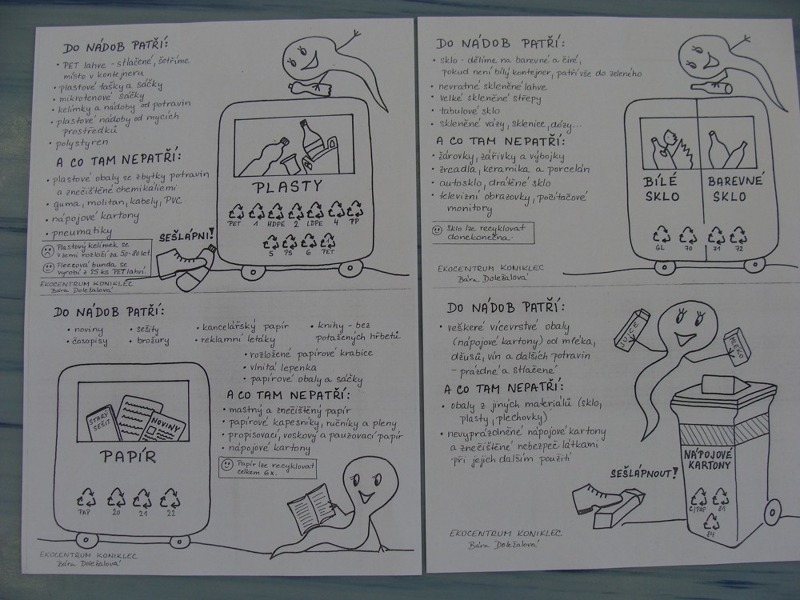 DO NÁDOB PATŘÍ:
• PET lahve - stlačené, šetříme
místo v kontejneru
• plastové tašky a sáčky
• mikrotenové sáčky
• kelímky a nádoby od potravin
• plastové nádoby od mycích
prostředků
• polystyren
A CO TAM NEPATŘÍ:
• plastové obaly se zbytky potravin
a znečištěné chemikáliemi
• guma, molitan, kabely, PVC
• nápojové kartony
• pneumatiky
Plastový kelímek se
v zemi rozloží za 50-80 let
Fleecová bunda se
vyrobí z 25 ks PET lahví
SEŠLÁPNI!
PLASTY
PET 1 HDPE 2 LDPE 4 PP
5 PS 6 PET
EKOCENTRUM KONIKLEC
Bára Doležalová
DO NÁDOB PATŘÍ:
• noviny
• časopisy
• sešity
• brožury
• kancelářský papír
• reklamní letáky
• knihy - bez
potažených hřbetů
• rozložené papírové krabice
• vlnitá lepenka
• papírové obaly a sáčky
A CO TAM NEPATŘÍ:
• mastný a znečištěný papír
• papírové kapesníky, ručníky a pleny
• propisovací, voskový a pauzovací papír
• nápojové kartony
Papír lze recyklovat
celkem 6x.
STARÝ
SEŠIT
NOVINY
PAPÍR
PAP 20 21 22
EKOCENTRUM KONIKLEC
Bára Doležalová
DO NÁDOB PATŘÍ:
• sklo - dělíme na barevné a čiré,
pokud není bílý kontejner, patří vše do zeleného
• nevratné skleněné lahve
• velké skleněné střepy
• tabulové sklo
• skleněné vázy, sklenice, dózy...
A CO TAM NEPATŘÍ:
• žárovky, zářivky a výbojky
• zrcadla, keramika a porcelán
• autosklo, drátěné sklo
• televizní obrazovky, počítačové
monitory
Sklo lze recyklovat
donekonečna.
BÍLÉ
SKLO
BAREVNÉ
SKLO
GL 70 71 72
EKOCENTRUM KONIKLEC
Bára Doležalová
DO NÁDOB PATŘÍ:
• veškeré vícevrstvé obaly
(nápojové kartony) od mléka,
džusů, vín a dalších potravin
- prázdné a stlačené
A CO TAM NEPATŘÍ:
• obaly z jiných materiálů (sklo,
plasty, plechovky)
• nevyprázdněné nápojové kartony
a znečištěné nebezpeč. látkami
při jejich dalším použití
JUICE
MLÉKO
SEŠLÁPNOUT!
NÁPOJOVÉ
KARTONY
81
84
EKOCENTRUM KONIKLEC
Bára Doležalová